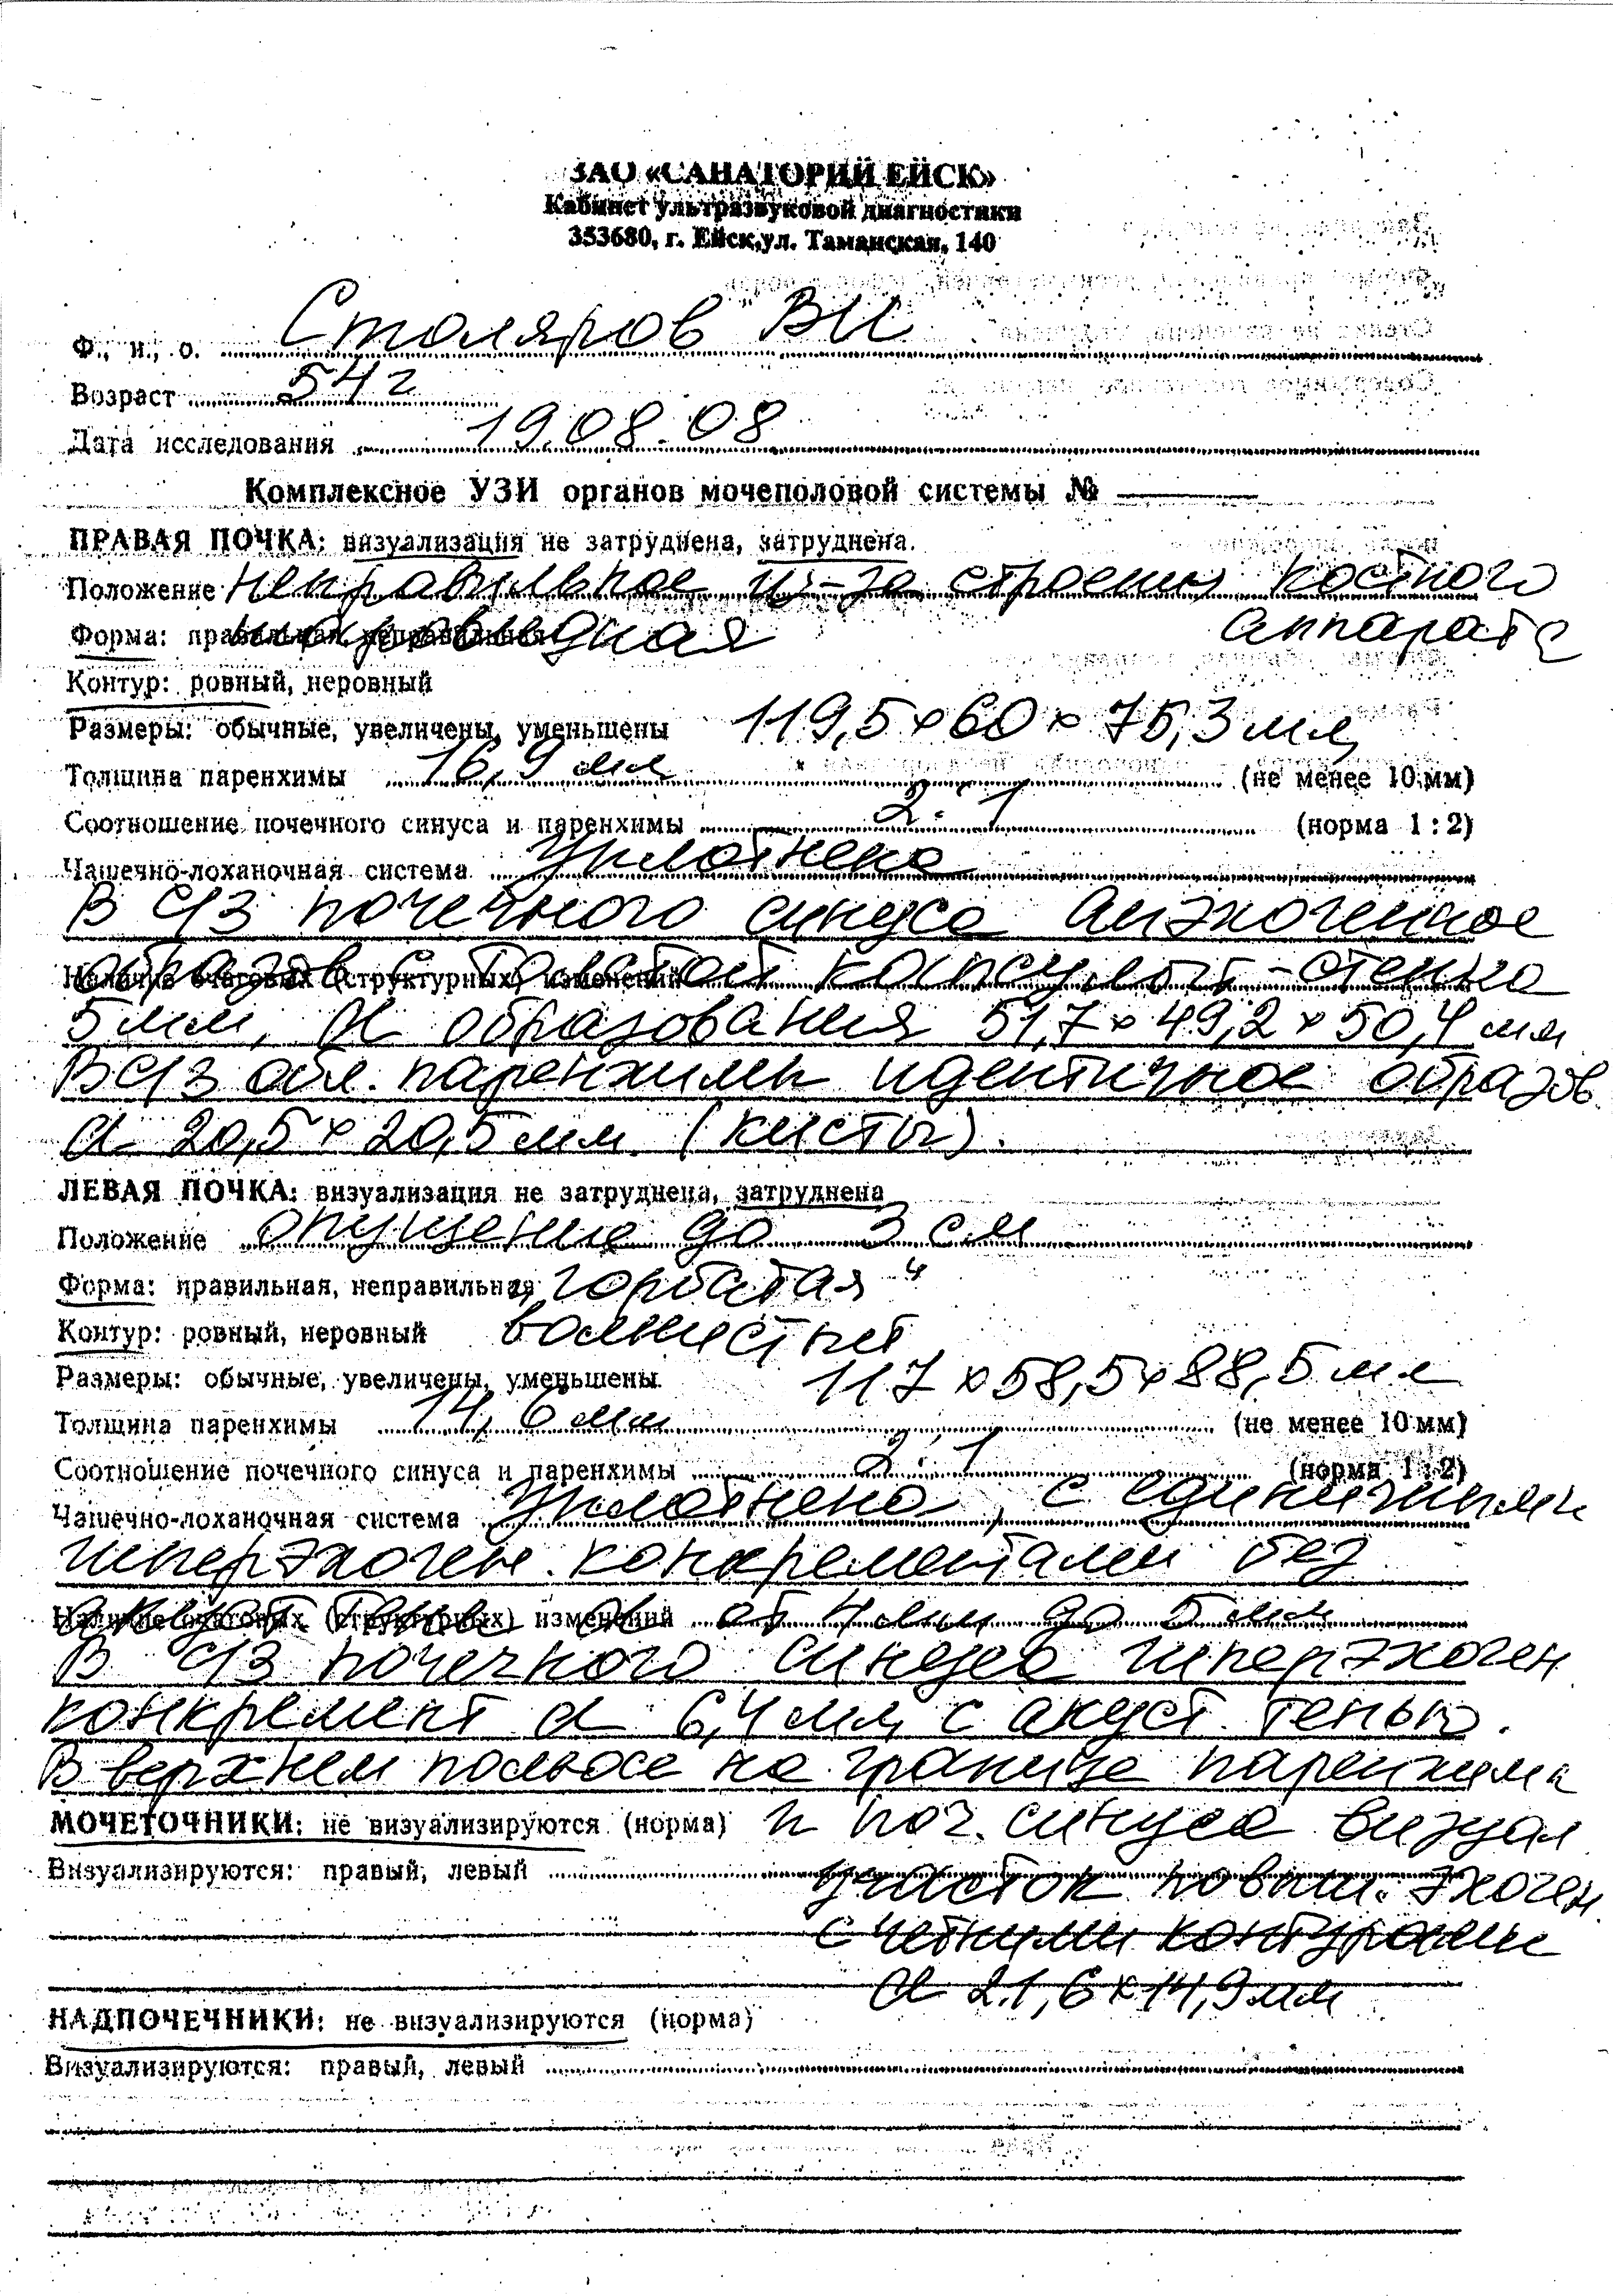 ЗАО «САНАТОРИЙ ЕЙСК»
Кабинет ультразвуковой диагностики
353680, г. Ейск, ул. Таманская, 140
Ф., и., о. Столяров В И
Возраст 54 г
Дата исследования 19.08.08
Комплексное УЗИ органов мочеполовой системы №
ПРАВАЯ ПОЧКА: визуализация не затруднена, затруднена.
Положение неправильное из-за строения костного
аппарата
Форма: правильная, неправильная
Контур: ровный, неровный
Размеры: обычные, увеличены, уменьшены 119,5 х 60 х 75,3 мм
Толщина паренхимы 16,9 мм (не менее 10 мм)
Соотношение почечного синуса и паренхимы 2:1 (норма 1 : 2)
Чашечно-лоханочная система уплотнена
В с/з почечного синуса анэхогенное
Наличие очаговых (структурных) изменений образов с толстой капсулой - стенка
5 мм, d образования 51,7 х 49,2 х 50,4 мм
В с/з обл. паренхимы идентичное образов
d 20,5 х 20,5 мм (кисты).
ЛЕВАЯ ПОЧКА: визуализация не затруднена, затруднена
Положение опущение до 3 см
Форма: правильная, неправильная „горбатая“
Контур: ровный, неровный волнистый
Размеры: обычные, увеличены, уменьшены 117 х 58,5 х 88,5 мм
Толщина паренхимы 14,6 мм (не менее 10 мм)
Соотношение почечного синуса и паренхимы 2:1 (норма 1 : 2)
Чашечно-лоханочная система уплотнена, с единичными
гиперэхоген. конкрементами без
Наличие очаговых (структурных) изменений от 4 мм до 5 мм
В с/з почечного синуса гиперэхоген
конкремент d 6,4 мм с акуст. тенью.
В верхнем полюсе на границе паренхимы
МОЧЕТОЧНИКИ: не визуализируются (норма) и поч. синуса визуал
Визуализируются: правый, левый участок повыш. эхоген
с четкими контурами
d 21,6 х 14,9 мм
НАДПОЧЕЧНИКИ: не визуализируются (норма)
Визуализируются: правый, левый